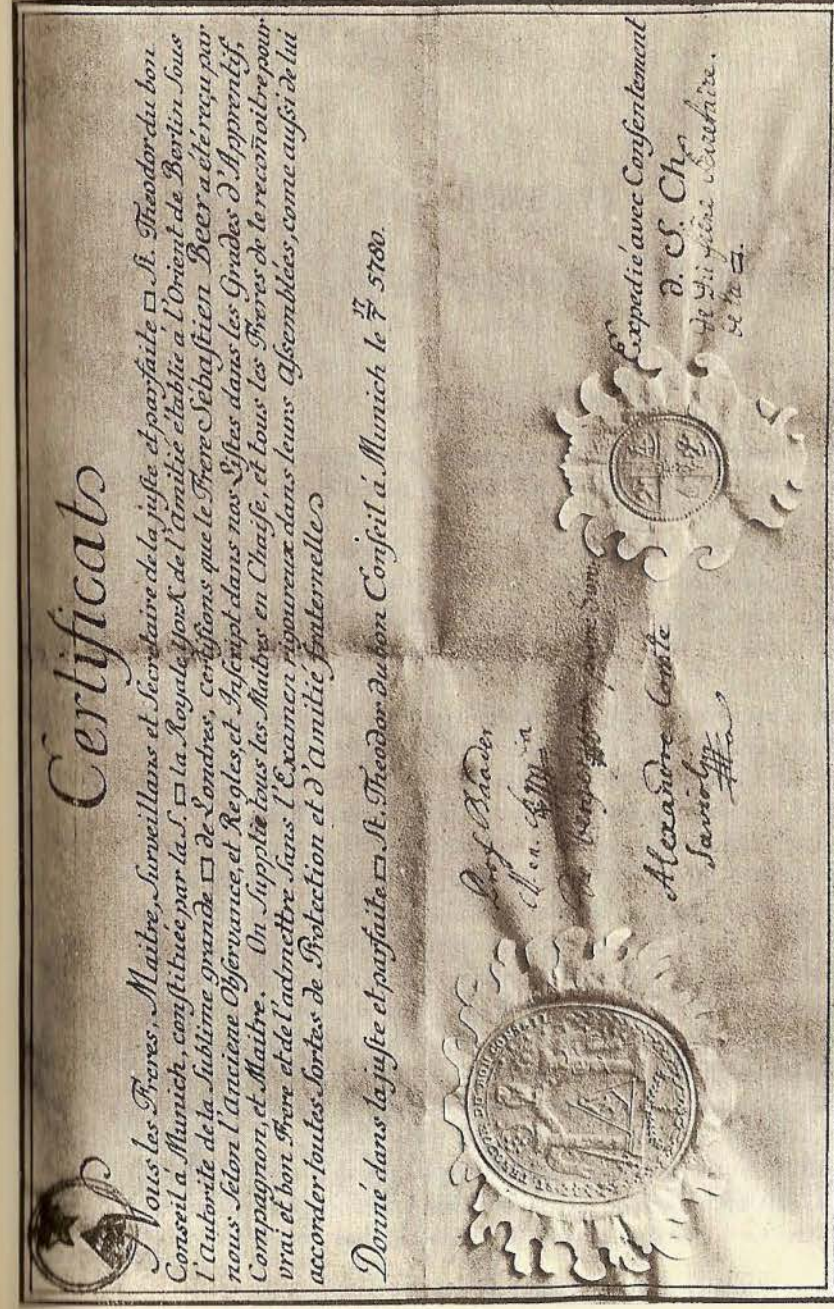 Certificat
Nous les Freres, Maitre, Surveillans et Secretaire de la juste et parfaite □ St. Theodor du bon
Conseil á Munich, constituée par la S. □ la Royale york de l'Amitié établie á l'Orient de Berlin sous
l'Autorité de la Sublime grande □ de Londres, certifions que le Frere Sébastien Beer a été reçu par
nous Selon l'Anciene Observance, et Regles, et Inscript dans nos Listes dans les Grades d'Apprentif,
Compagnon, et Maitre. On Supplie tous les Maitres en Chaise, et tous les Freres de le recoñoitre pour
vrai et bon Frere et de l'admettre Sans l'Examen rigoureux dans leurs Assemblées, come aussi de lui
accorder toutes Sortes de Protection et d'Amitié fraternelle
Donné dans la juste et parfaite □ St. Theodor du bon Conseil á Munich le 17/7 5780.
DU BON CONSEIL
Prof Baader
Alexandre Comte
Savioly
Expedié avec Consentement
d. S. Ch
Secretaire.
de la □.